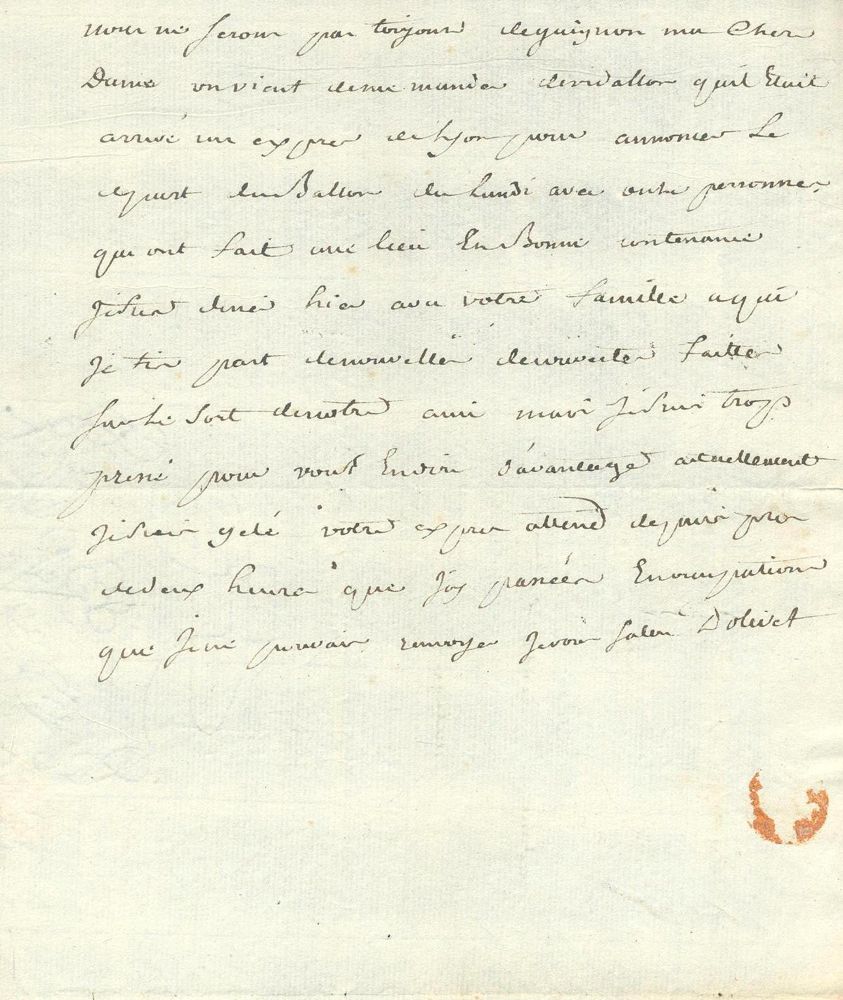 nous ne serons pas toujours deguignon ma Chere
Dame on vient deme mander devidallon quil Etait
arrivé un expres de lyon pour annoncer Le
depart du Ballon du Lundi avec onze personnes
qui ont fait une lieu En Bonne contenance
Jesuis diné hier avec votre famille aqui
Je fis part denouvelles decouvertes faittes
sur Le Sort denotre ami mais jesuis trop
pressé pour vous En dire d'avantage actuellement
jesuis gelé votre expres attend depuis pres
dedeux heures que J'ay passées En occupations
que Jene pouvais renvoyer Jevous salue Dolivet